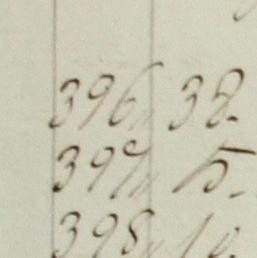 396 " 38.
397 " 15.
398 " 10.